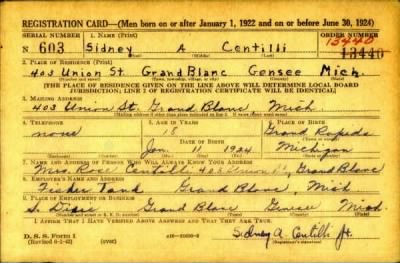 REGISTRATION CARD—(Men born on or after January 1, 1922 and on or before June 30, 1924)
SERIAL NUMBER 1. NAME (Print) ORDER NUMBER
N 603 Sidney A Centilli 13440
(First) (Middle) (Last) 13440
2. PLACE OF RESIDENCE (Print)
403 Union St. Grand Blanc Gensee Mich.
(Number and street) (Town, township, village, or city) (County) (State)
[THE PLACE OF RESIDENCE GIVEN ON THE LINE ABOVE WILL DETERMINE LOCAL BOARD
JURISDICTION; LINE 2 OF REGISTRATION CERTIFICATE WILL BE IDENTICAL]
3. MAILING ADDRESS
403 Union St. Grand Blanc Mich
4. TELEPHONE 5. AGE IN YEARS 6. PLACE OF BIRTH
none 18 Grand Rapids
DATE OF BIRTH
Jan 11 1924 Michigan
7. NAME AND ADDRESS OF PERSON WHO WILL ALWAYS KNOW YOUR ADDRESS
Mrs. Rose Centilli 403 Union St, Grand Blanc
8. EMPLOYER'S NAME AND ADDRESS
Fisher Tank Grand Blanc, Mich
9. PLACE OF EMPLOYMENT OR BUSINESS
S. Dixie Grand Blanc Gensee Mich.
I AFFIRM THAT I HAVE VERIFIED ABOVE ANSWERS AND THAT THEY ARE TRUE.
D. S. S. Form 1
(Revised 6-1-42) (over) Sidney A. Centilli Jr.
(Registrant's signature)